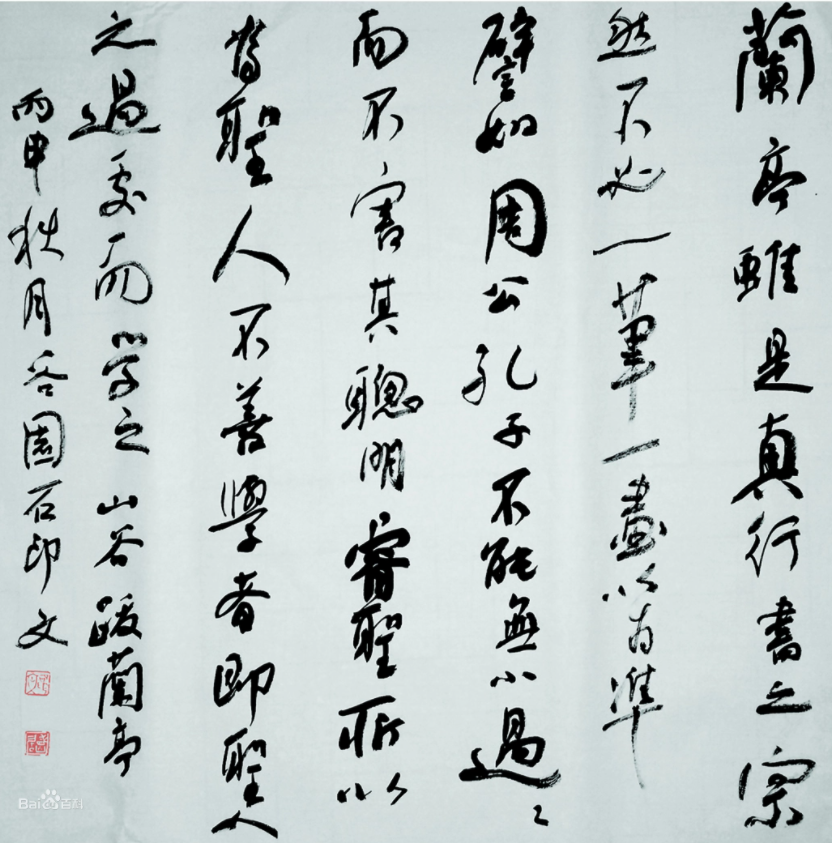 蘭亭雖是真行書之宗
然不必一筆一畫以為準
譬如周公孔子不能無小過過
而不害其聰明睿聖所以
為聖人不善學者即聖人
之過處而學之山谷跋蘭亭
丙申秋月谷園石印文
Bai百科